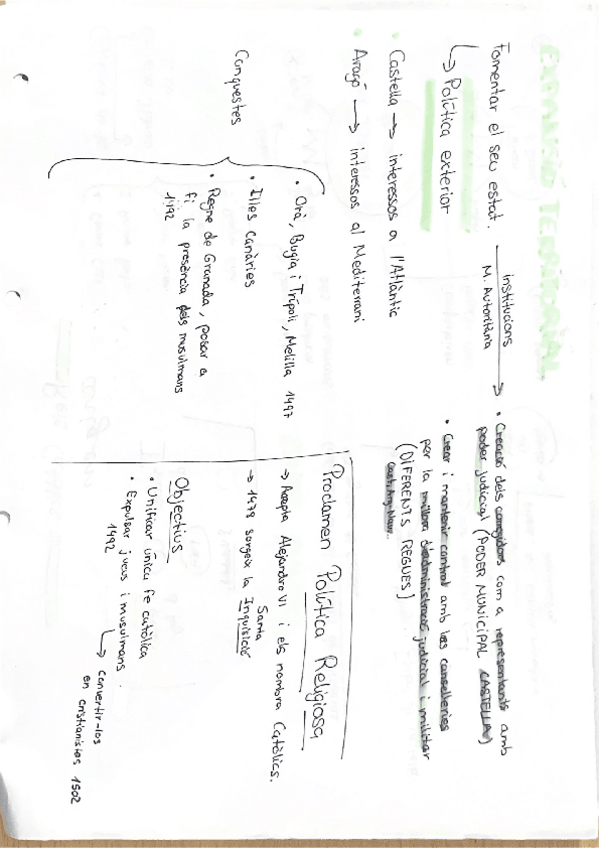 EXPANSIÓ TERRITORIAL
Fomentar el seu estat.
institucions
M. Autoritària
• Creació dels corregidors com a representants amb
poder judicial (PODER MUNICIPAL CASTELLA)
• Crear i mantenir control amb les conselleries
per la millora d'administració judicial i militar
(DIFERENTS REGNES)
↳ Política exterior
• Castella → interessos a l'Atlàntic
• Aragó → interessos al Mediterrani
Conquestes
• Orà, Bugia i Trípoli, Melilla 1497
• Illes Canàries
• Regne de Granada, posar a
fi la presència dels musulmans
1492
Proclamen Política Religiosa
→ Alejandro VI i els nombra Catòlics.
→ 1478 sorgeix la Santa Inquisició
Objectius
• Unificar única fe catòlica
• Expulsar jueus i musulmans.
1492
↳ convertir-los
en cristianisles 1502